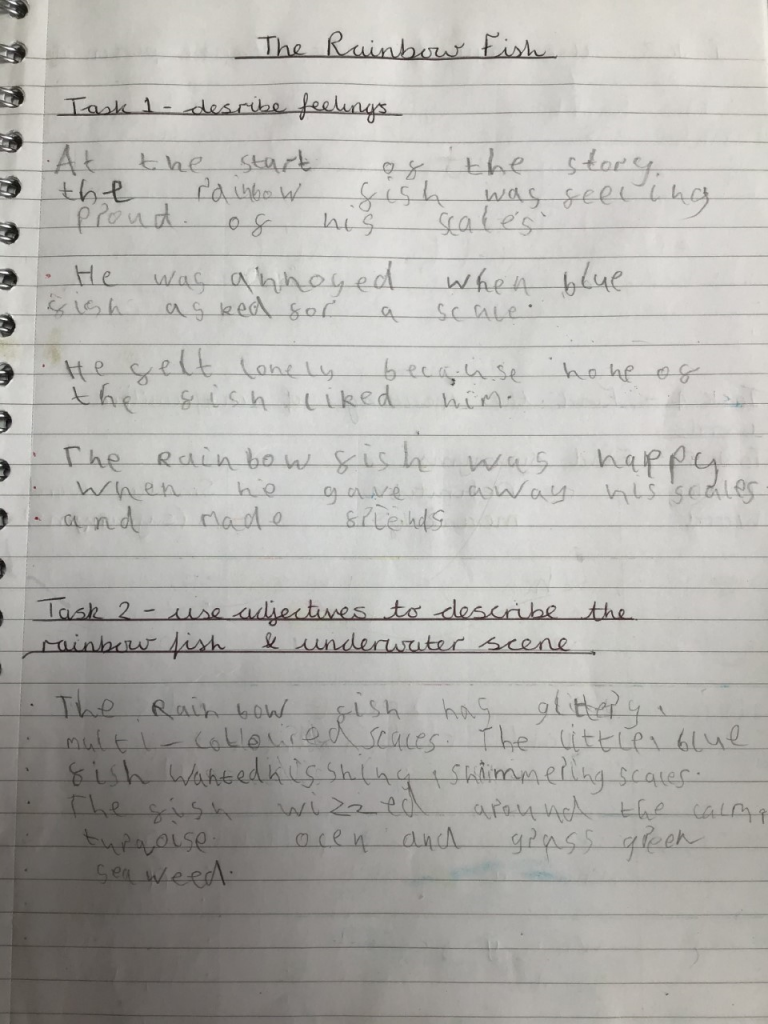 The Rainbow Fish
Task 1 - desribe feelings
At the start of the story.
the rainbow fish was feeling
proud. of his scales.
He was annoyed when blue
fish asked for a scale.
He felt lonely because none of
the fish liked him.
The Rainbow fish was happy
when he gave away his scales
and made friends
Task 2 - use adjectives to describe the
rainbow fish & underwater scene
The Rainbow fish has glittery,
multi-coloured scales. The little, blue
fish wanted his shiny, shimmering scales.
The fish wizzed around the calm,
turqoise ocen and grass green
seaweed.